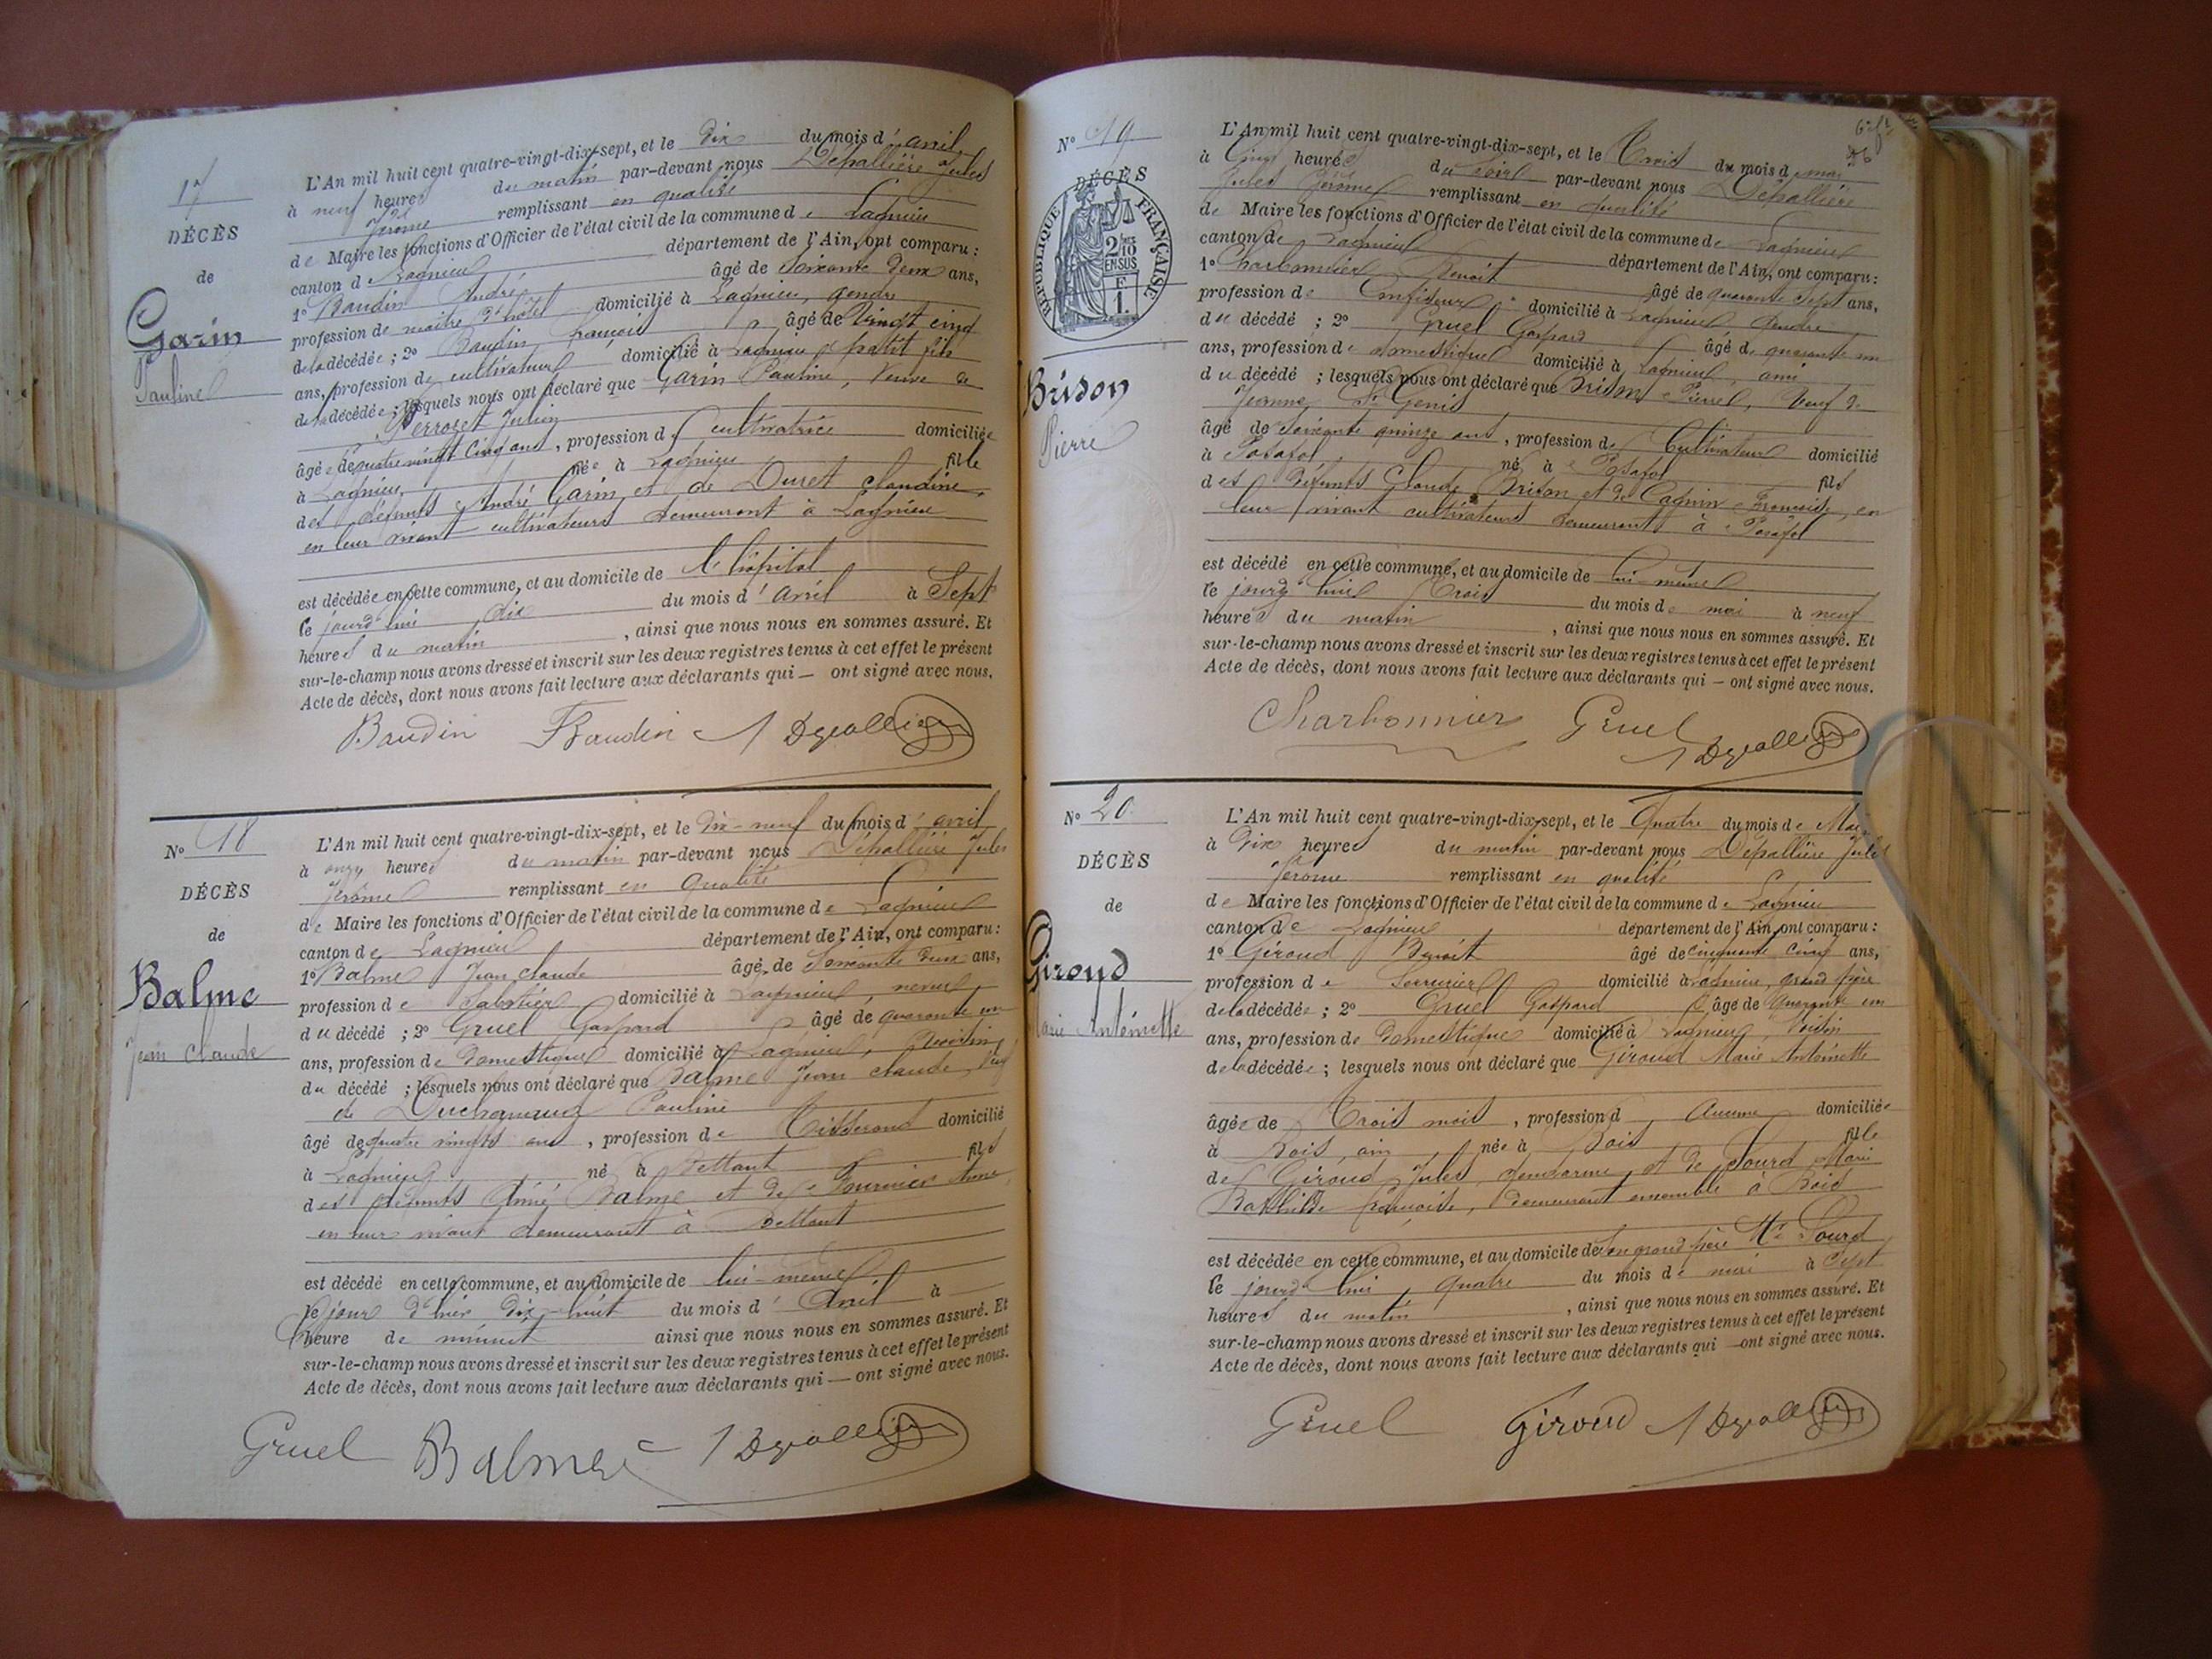 17
DÉCÈS
de
Garin
Pauline
L'An mil huit cent quatre-vingt-dix-sept, et le dix du mois d'avril
à neuf heures du matin par-devant nous Dépallière Jules
Jérôme remplissant en qualité
de Maire les fonctions d'Officier de l'état civil de la commune de Lagnieu
canton de Lagnieu département de l'Ain, ont comparu :
1° Baudin André âgé de soixante deux ans,
profession de maître d'hôtel domicilié à Lagnieu, gendre
de la décédée ; 2° Baudin françois âgé de vingt cinq
ans, profession de cultivateur domicilié à Lagnieu petit fils
de la décédée ; lesquels nous ont déclaré que Garin Pauline, Veuve de
Perrozet Julien
âgée de quatre vingt cinq ans, profession de cultivatrice domiciliée
à Lagnieu née à Lagnieu fille
des défunts André Garin et de Duret Claudine,
en leur vivant cultivateurs demeurant à Lagnieu
est décédée en cette commune, et au domicile de l'hôpital
le jourd'hui dix du mois d'avril à Sept
heures du matin, ainsi que nous nous en sommes assuré. Et
sur-le-champ nous avons dressé et inscrit sur les deux registres tenus à cet effet le présent
Acte de décès, dont nous avons fait lecture aux déclarants qui — ont signé avec nous.
Baudin F Baudin
N° 18
DÉCÈS
de
Balme
Jean Claude
L'An mil huit cent quatre-vingt-dix-sept, et le dix-neuf du mois d'avril
à onze heures du matin par-devant nous Dépallière Jules
Jérôme remplissant en qualité
de Maire les fonctions d'Officier de l'état civil de la commune de Lagnieu
canton de Lagnieu département de l'Ain, ont comparu :
1° Balme Jean Claude âgé de Soixante deux ans,
profession de Sabotier domicilié à Lagnieu, neveu
du décédé ; 2° Gruel Gaspard âgé de quarante un
ans, profession de domestique domicilié à Lagnieu, voisin
du décédé ; lesquels nous ont déclaré que Balme Jean Claude, Veuf
de Pauline
âgé de quatre vingts ans, profession de Tisserand domicilié
à Lagnieu né à Bettant fils
des défunts Aimé Balme et de Fournier Anne
en leur vivant demeurant à Bettant
est décédé en cette commune, et au domicile de lui-même
le jour d'hier dix-huit du mois d'Avril à
heure de minuit ainsi que nous nous en sommes assuré. Et
sur-le-champ nous avons dressé et inscrit sur les deux registres tenus à cet effet le présent
Acte de décès, dont nous avons fait lecture aux déclarants qui — ont signé avec nous.
Gruel Balme
N° 19
DÉCÈS
RÉPUBLIQUE FRANÇAISE
2/10
EN SUS
F
1.
Brison
Pierre
L'An mil huit cent quatre-vingt-dix-sept, et le Trois du mois de mai
à Cinq heures du soir par-devant nous Dépallière
Jules Jérôme remplissant en qualité
de Maire les fonctions d'Officier de l'état civil de la commune de Lagnieu
canton de Lagnieu département de l'Ain, ont comparu :
1° Charbonnier Benoit âgé de quarante sept ans,
profession de Confiseur domicilié à Lagnieu Gendre
du décédé ; 2° Gruel Gaspard âgé de quarante un
ans, profession de domestique domicilié à Lagnieu, ami
du décédé ; lesquels nous ont déclaré que Brison Pierre, Veuf de
Jeanne St Genis
âgé de soixante quinze ans, profession de Cultivateur domicilié
à Posafol né à Posafol fils
des défunts Claude Brison et de Cagnin Francoise, en
leur vivant cultivateurs demeurants à Posafol
est décédé en cette commune, et au domicile de lui-même
le jourd'hui Trois du mois de mai à neuf
heures du matin, ainsi que nous nous en sommes assuré. Et
sur-le-champ nous avons dressé et inscrit sur les deux registres tenus à cet effet le présent
Acte de décès, dont nous avons fait lecture aux déclarants qui — ont signé avec nous.
Charbonnier Gruel
N° 20
DÉCÈS
de
Giroud
Marie Antoinette
L'An mil huit cent quatre-vingt-dix-sept, et le Quatre du mois de Mai
à Dix heures du matin par-devant nous Dépallière Jules
Jérôme remplissant en qualité
de Maire les fonctions d'Officier de l'état civil de la commune de Lagnieu
canton de Lagnieu département de l'Ain, ont comparu :
1° Giroud Benoit âgé de cinquante cinq ans,
profession de Serrurier domicilié à Lagnieu, grand père
de la décédée ; 2° Gruel Gaspard âgé de Quarante un
ans, profession de domestique domicilié à Lagnieu, Voisin
de la décédée ; lesquels nous ont déclaré que Giroud Marie Antoinette
âgée de Trois mois, profession d Aucune domiciliée
à Bois, ain, née à Bois fille
de Giroud Jules, Gendarme, et de Sourd Marie
Bathilde françoise, demeurant ensemble à Bois
est décédée en cette commune, et au domicile de son grand père Mr Sourd
le jourd'hui quatre du mois de mai à Sept
heures du matin, ainsi que nous nous en sommes assuré. Et
sur-le-champ nous avons dressé et inscrit sur les deux registres tenus à cet effet le présent
Acte de décès, dont nous avons fait lecture aux déclarants qui — ont signé avec nous.
Gruel Giroud